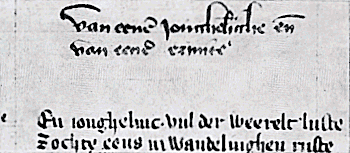 Van eenē Joncheliche eñ
van eenē ermite
En ionghelinc vul der weerelt luste
Zochte eens in wandelinghen ruste